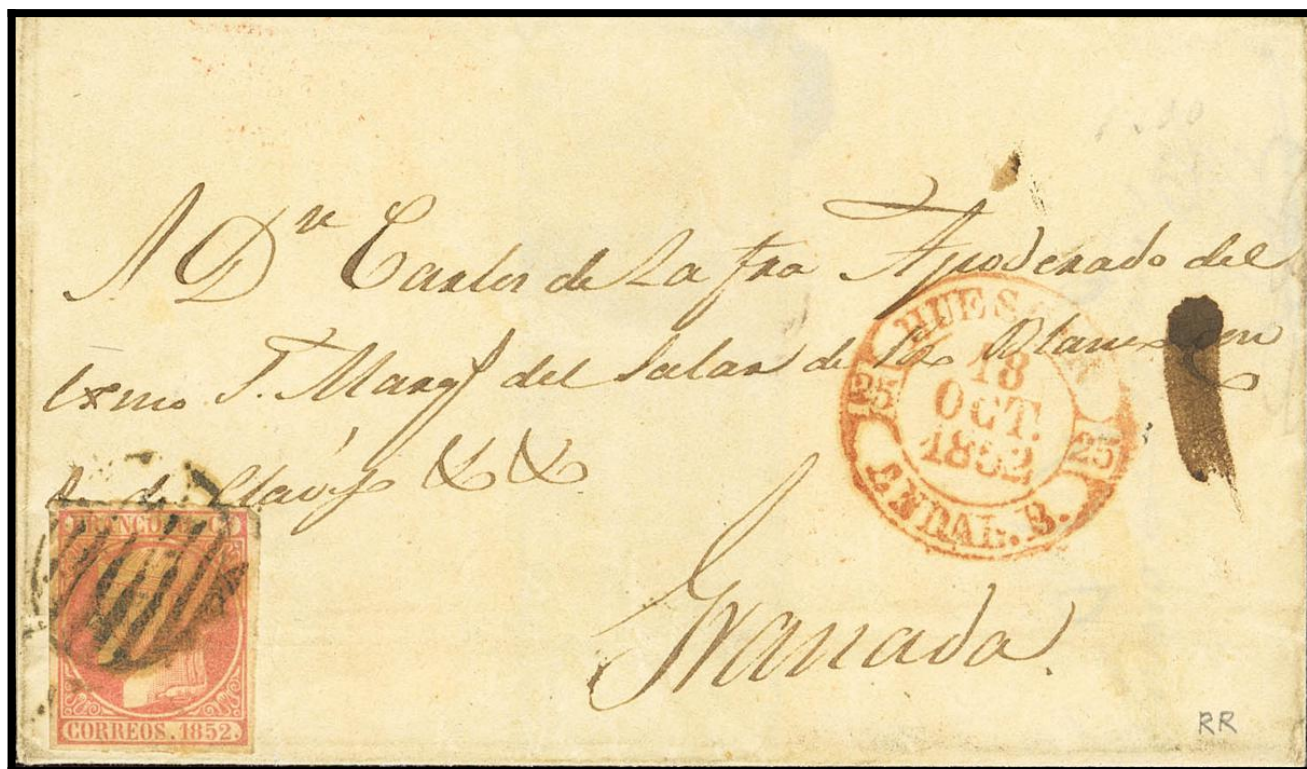 A Dn Carlos de La fra Apoderado del
Exmo S. Marqs del Salar de
&&
Granada.
HUES
18
OCT.
1852
25
25
ANDAL. B.
FRANCO
CORREOS. 1852.
RR